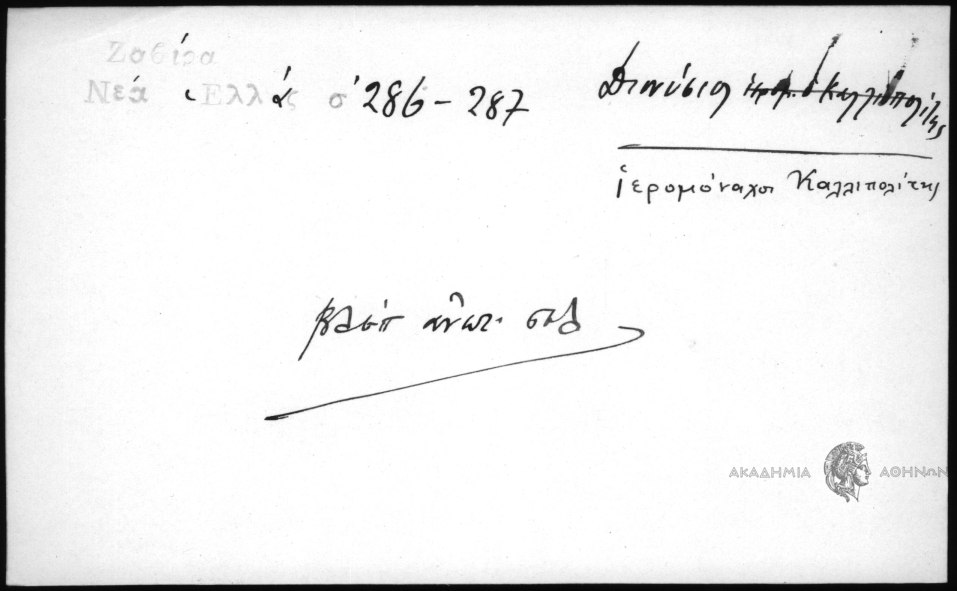 Ζαβίρα
Νέα Ἑλλάς σ 286-287
Διονύσιος ὁ Καλλιοπολίτης
ἱερομόναχος Καλλιπολίτης
βλέπ ἄνωτ. σελ
ΑΚΑΔΗΜΙΑ ΑΘΗΝΩΝ